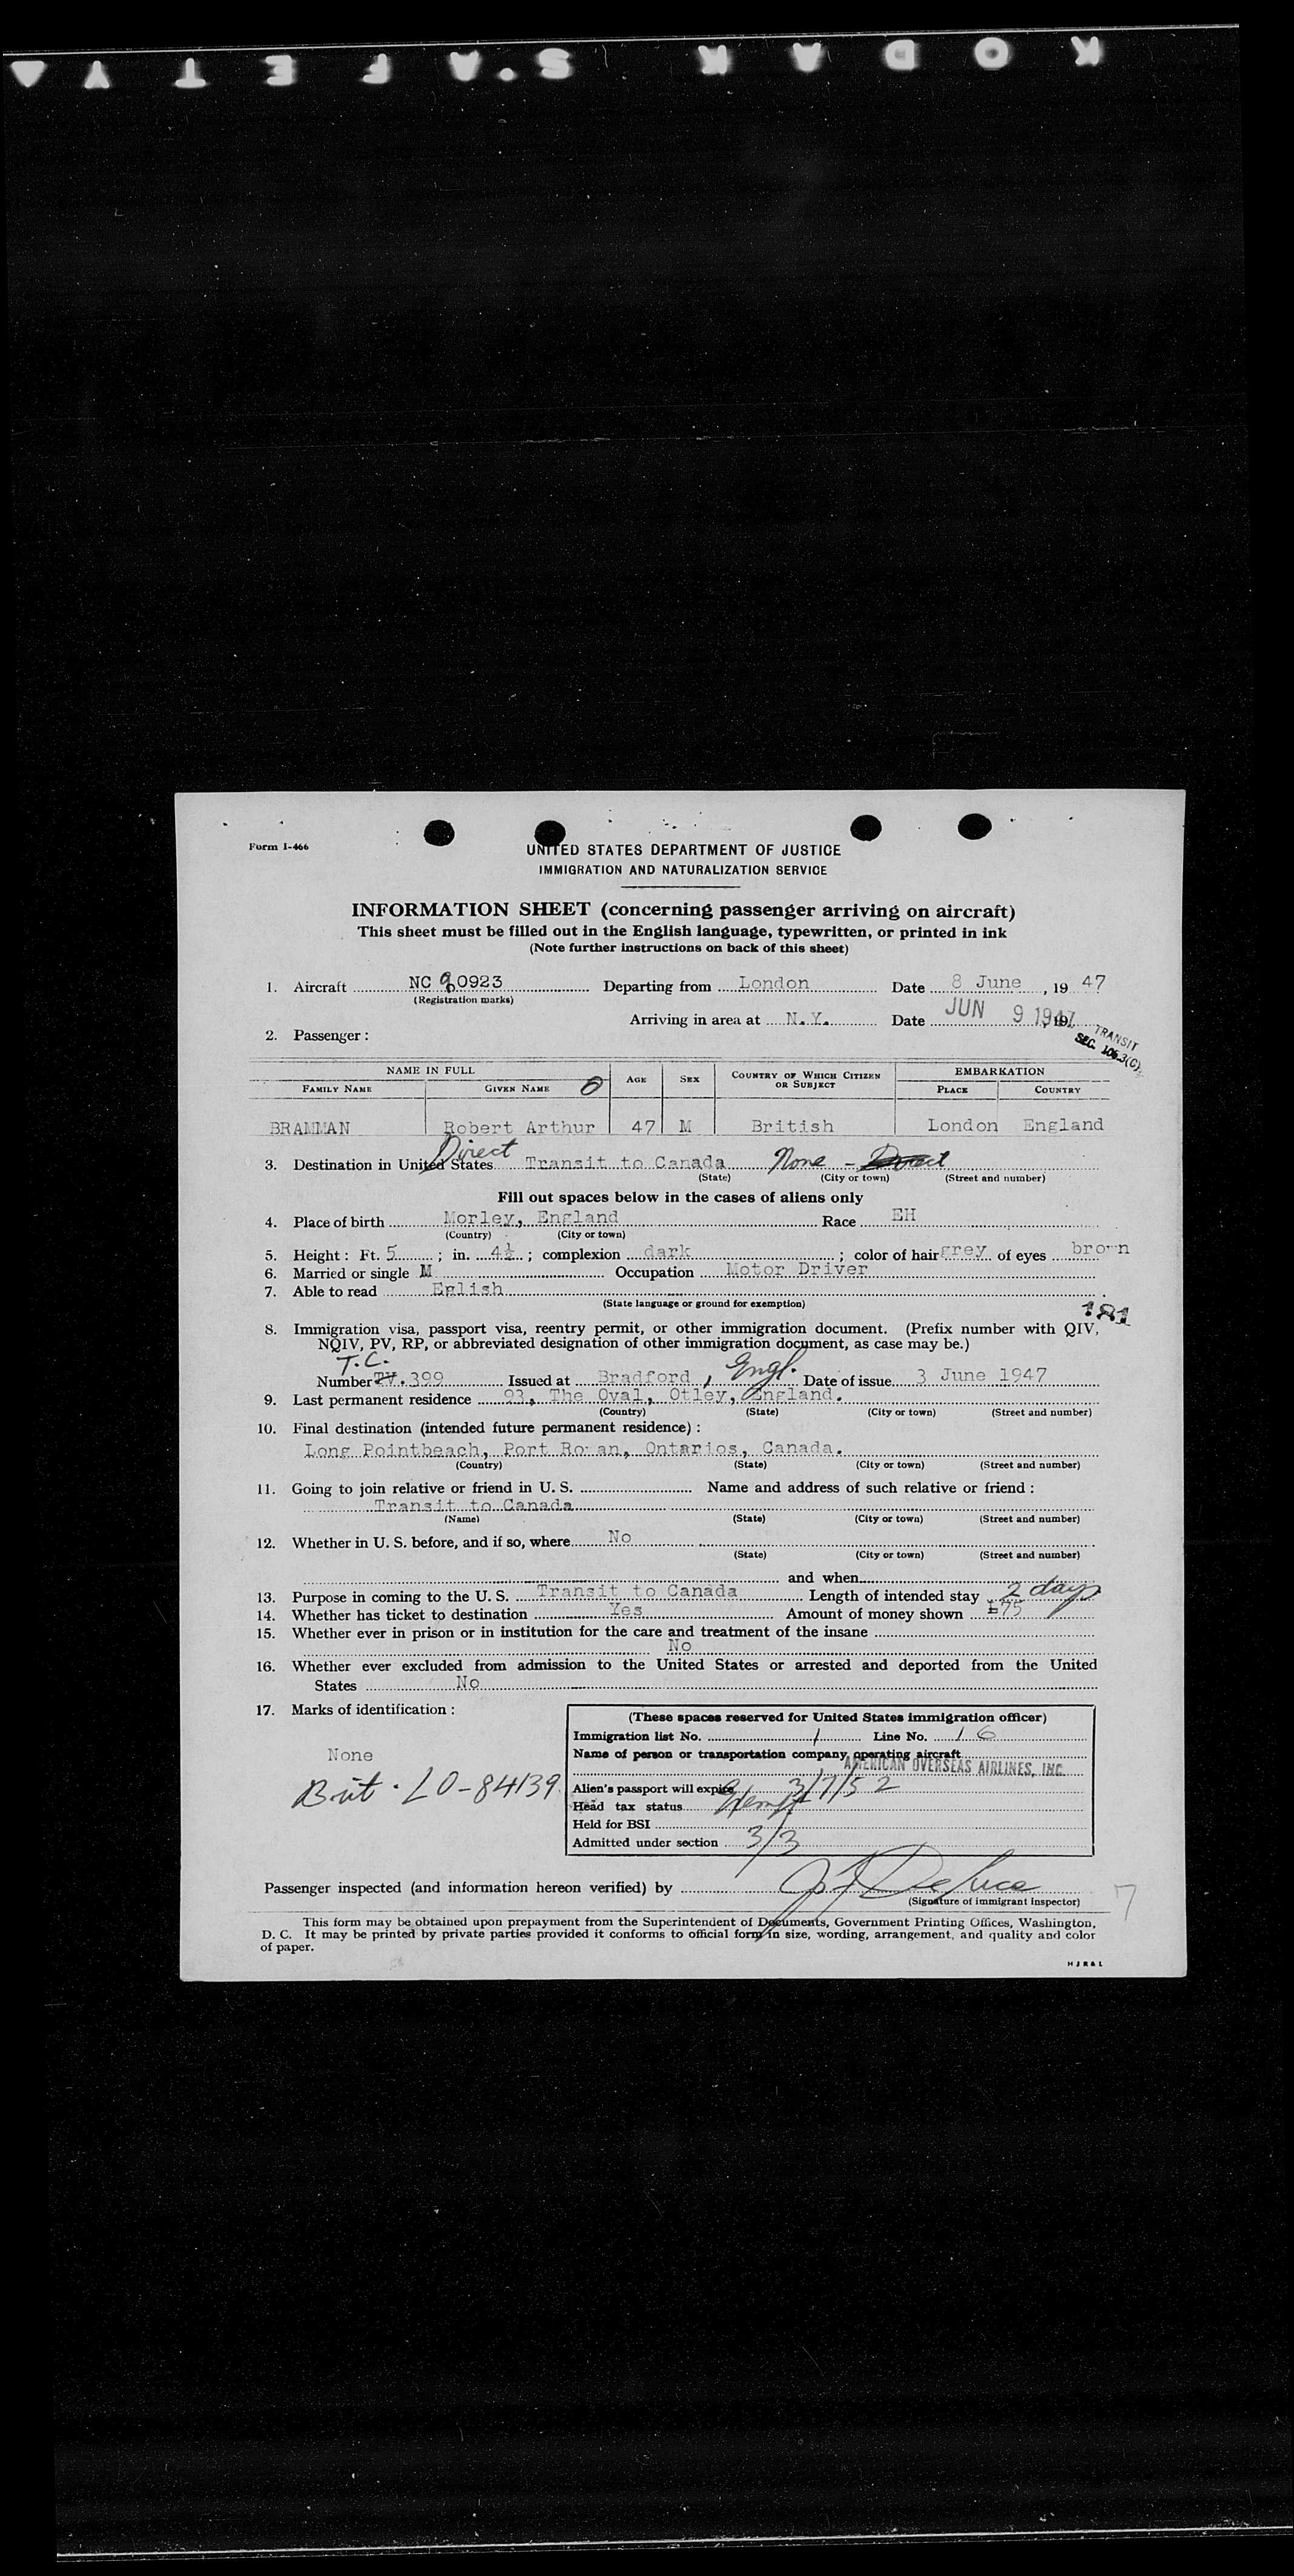 KODAK S.A.FETY
Form I-466
UNITED STATES DEPARTMENT OF JUSTICE
IMMIGRATION AND NATURALIZATION SERVICE
INFORMATION SHEET (concerning passenger arriving on aircraft)
This sheet must be filled out in the English language, typewritten, or printed in ink
(Note further instructions on back of this sheet)
1. Aircraft NC 90923 Departing from London Date 8 June, 19 47
(Registration marks)
Arriving in area at N.Y. Date JUN 9 1947, 19
TRANSIT
SEC. 106.3(C)
2. Passenger:
NAME IN FULL AGE SEX COUNTRY OF WHICH CITIZEN OR SUBJECT EMBARKATION
FAMILY NAME GIVEN NAME PLACE COUNTRY
BRAMMAN Robert Arthur 47 M British London England
Direct
3. Destination in United States Transit to Canada None - Direct
(State) (City or town) (Street and number)
Fill out spaces below in the cases of aliens only
4. Place of birth Morley, England Race EH
(Country) (City or town)
5. Height: Ft. 5; in. 4½; complexion dark; color of hair grey of eyes brown
6. Married or single M Occupation Motor Driver
7. Able to read Eglish
(State language or ground for exemption)
181
8. Immigration visa, passport visa, reentry permit, or other immigration document. (Prefix number with QIV,
NQIV, PV, RP, or abbreviated designation of other immigration document, as case may be.)
T.C.
Number TV.399 Issued at Bradford, Engl. Date of issue 3 June 1947
9. Last permanent residence 93, The Oval, Otley, England.
(Country) (State) (City or town) (Street and number)
10. Final destination (intended future permanent residence):
Long Pointbeach, Port Rowan, Ontarios, Canada.
(Country) (State) (City or town) (Street and number)
11. Going to join relative or friend in U. S. Name and address of such relative or friend:
Transit to Canada
(Name) (State) (City or town) (Street and number)
12. Whether in U. S. before, and if so, where No
(State) (City or town) (Street and number)
and when
13. Purpose in coming to the U. S. Transit to Canada Length of intended stay 2 days
14. Whether has ticket to destination Yes Amount of money shown £75
15. Whether ever in prison or in institution for the care and treatment of the insane
No
16. Whether ever excluded from admission to the United States or arrested and deported from the United
States No
17. Marks of identification:
None
Brit. LO-84139
(These spaces reserved for United States immigration officer)
Immigration list No. 1 Line No. 16
Name of person or transportation company operating aircraft
AMERICAN OVERSEAS AIRLINES, INC.
Alien's passport will expire 3/7/52
Head tax status Exempt
Held for BSI
Admitted under section 3/3
Passenger inspected (and information hereon verified) by
(Signature of immigrant inspector)
7
This form may be obtained upon prepayment from the Superintendent of Documents, Government Printing Offices, Washington,
D. C. It may be printed by private parties provided it conforms to official form in size, wording, arrangement, and quality and color
of paper.
HJR&L